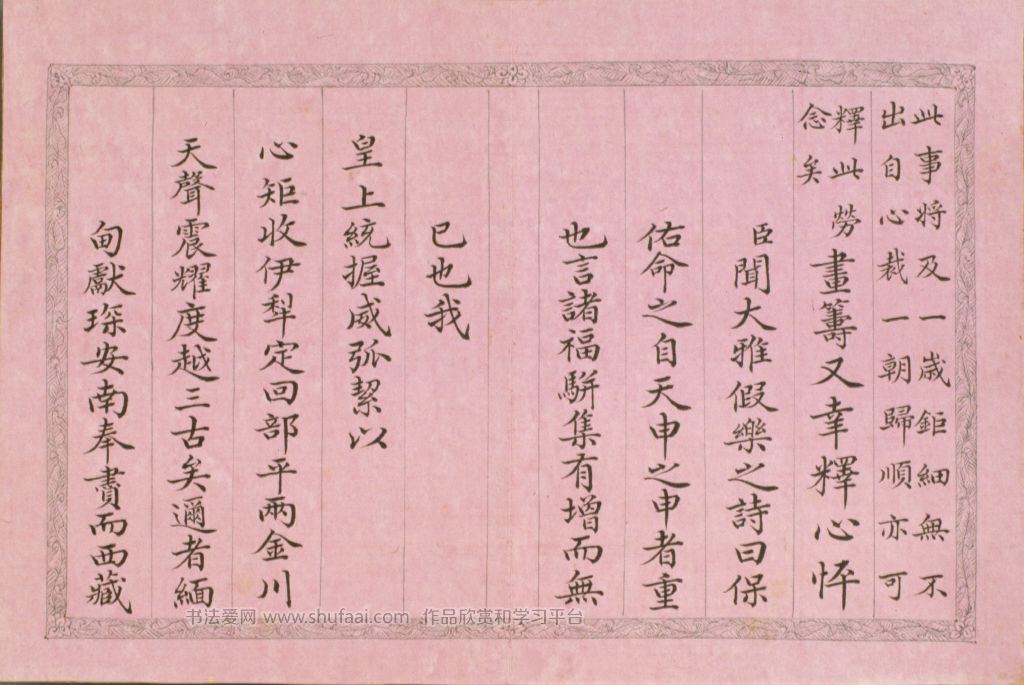 此事将及一歲鉅細無不
出自心裁一朝歸順亦可
釋此
念矣
勞畫籌又幸釋心怦
臣聞大雅假樂之詩曰保
佑命之自天申之申者重
也言諸福駢集有增而無
已也我
皇上統握威弧絜以
心矩收伊犁定回部平兩金川
天聲震耀度越三古矣邇者緬
甸獻琛安南奉賮而西藏
书法爱网 www.shufaai.com 作品欣赏和学习平台